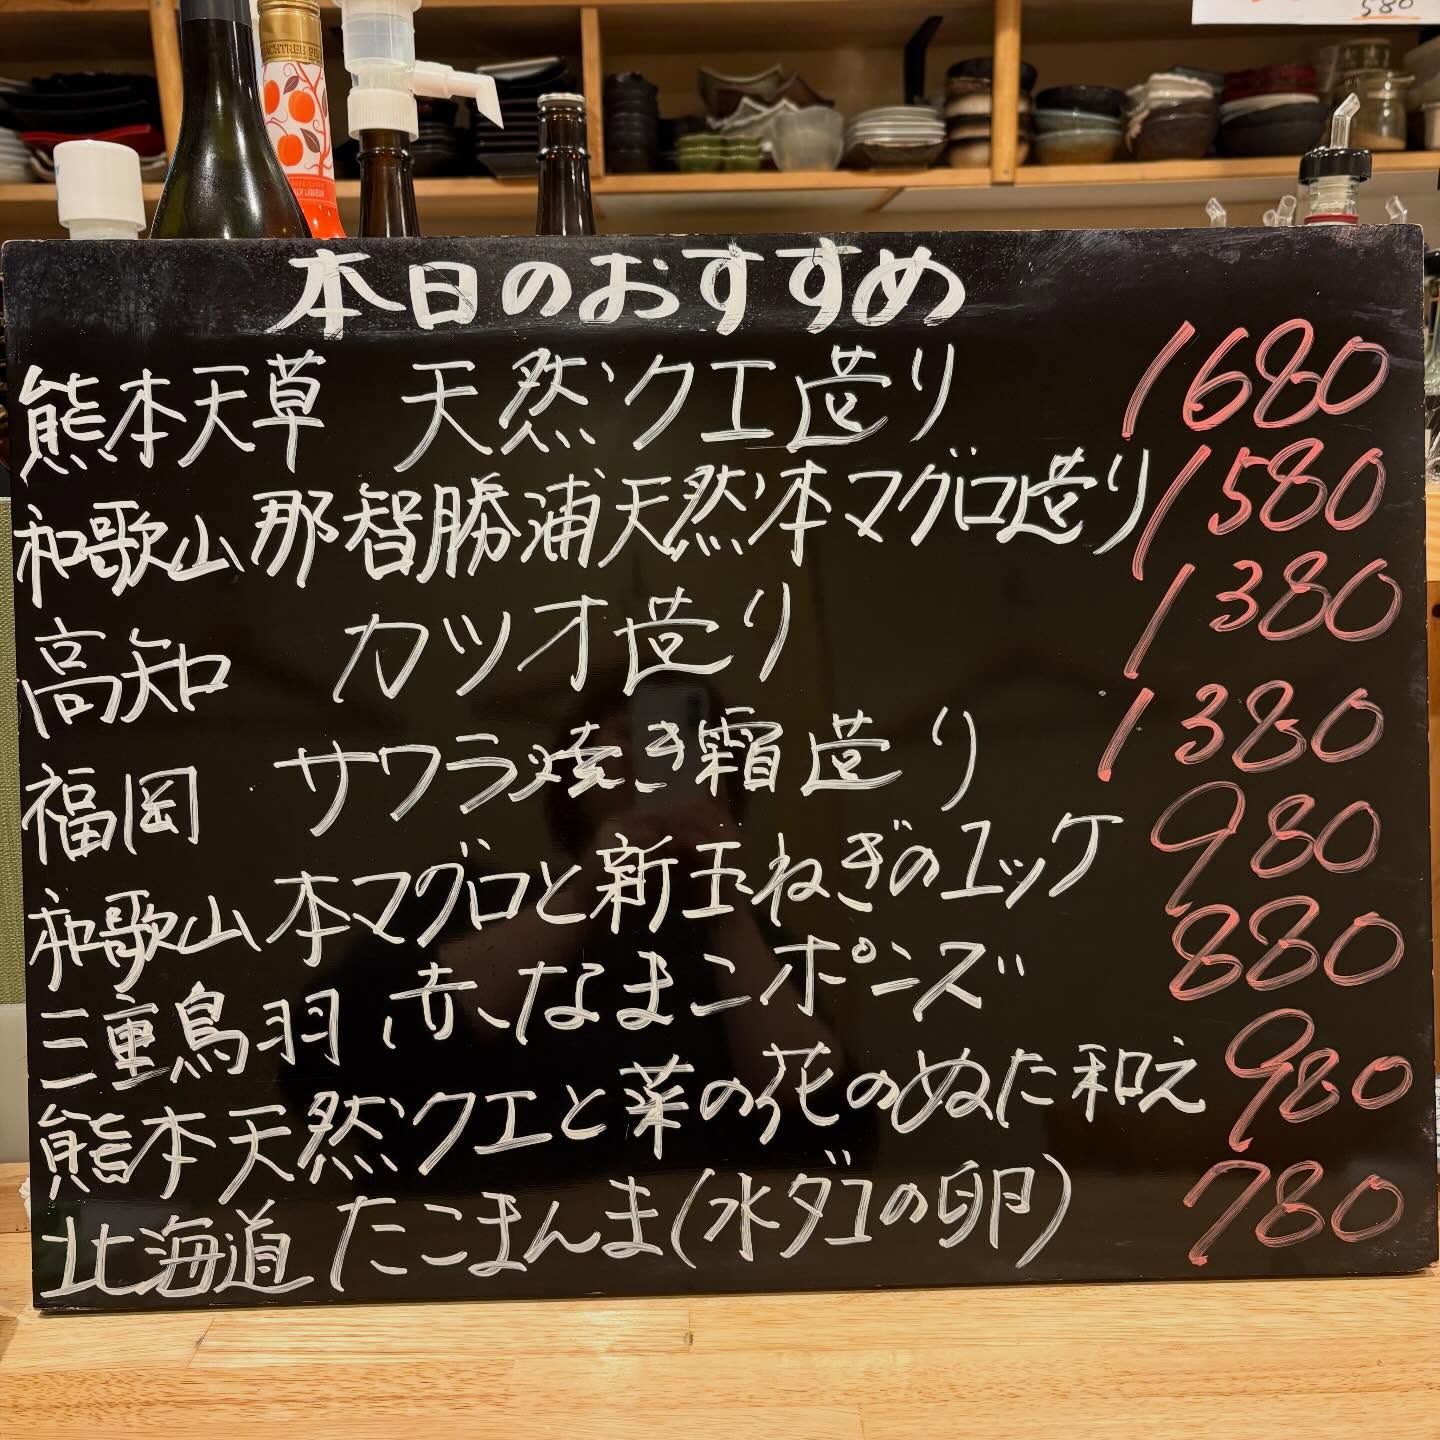 580
本日のおすすめ
熊本天草 天然クエ造り 1680
和歌山那智勝浦天然本マグロ造り 1580
高知 カツオ造り 1380
福岡 サワラ焼き霜造り 1380
和歌山本マグロと新玉ねぎのユッケ 980
三重鳥羽 赤なまこポンズ 880
熊本天然クエと菜の花のぬた和え 980
北海道 たこまんま(水ダコの卵) 780